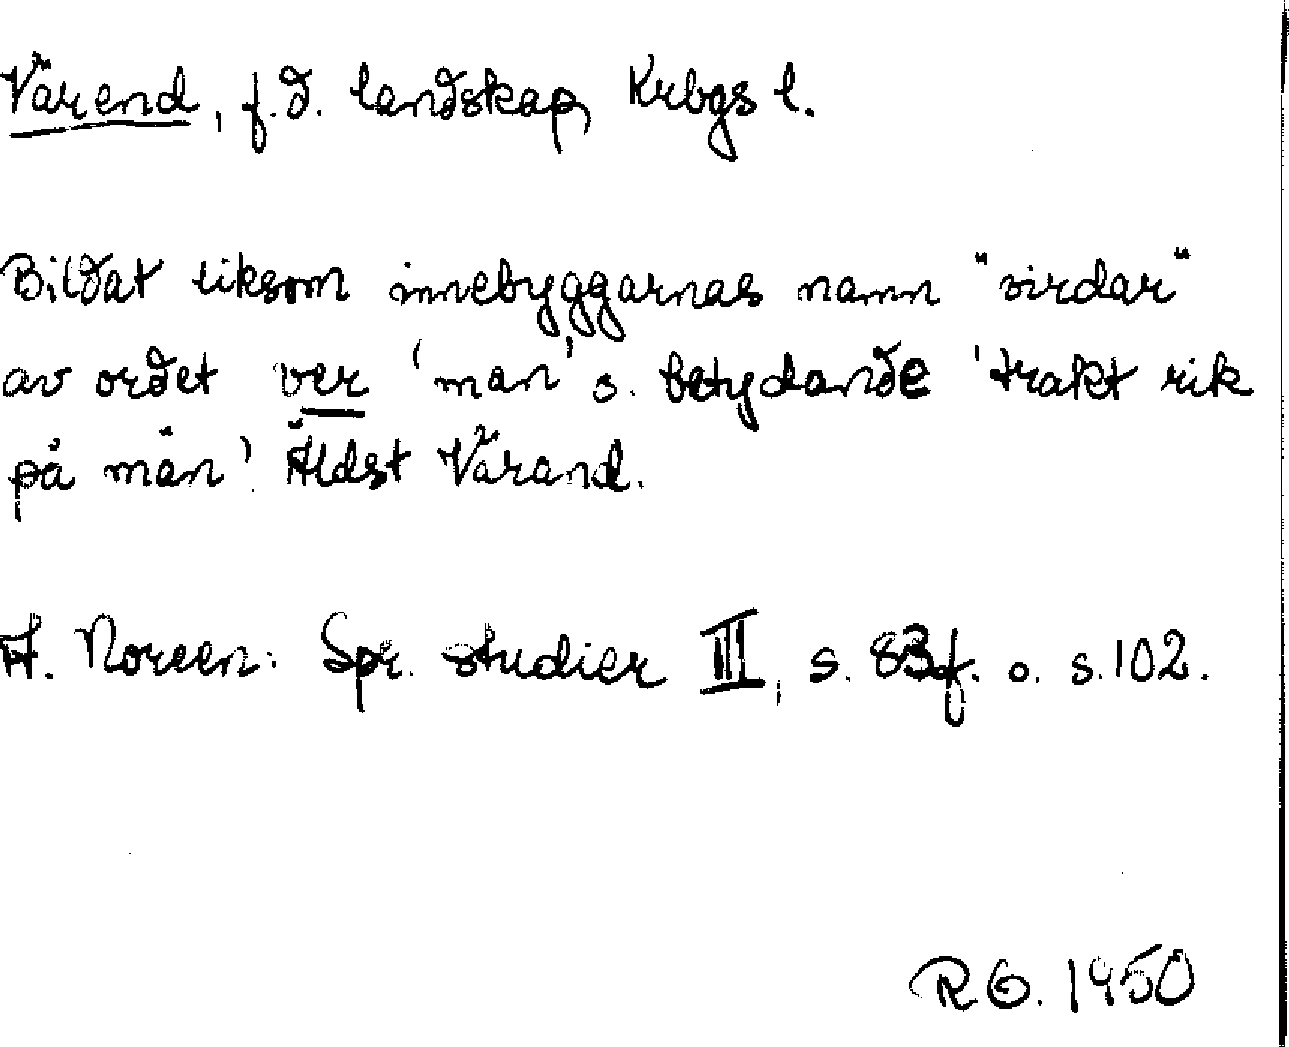 Värend, f.d. landskap, Krbgs l.
Bildat liksom innebyggarnas namn "virdar"
av ordet ver 'man' o. betydande 'trakt rik
på män'. Äldst Värand.
A. Noreen: Spr. studier III, s. 83f. o. s. 102.
R G. 1950